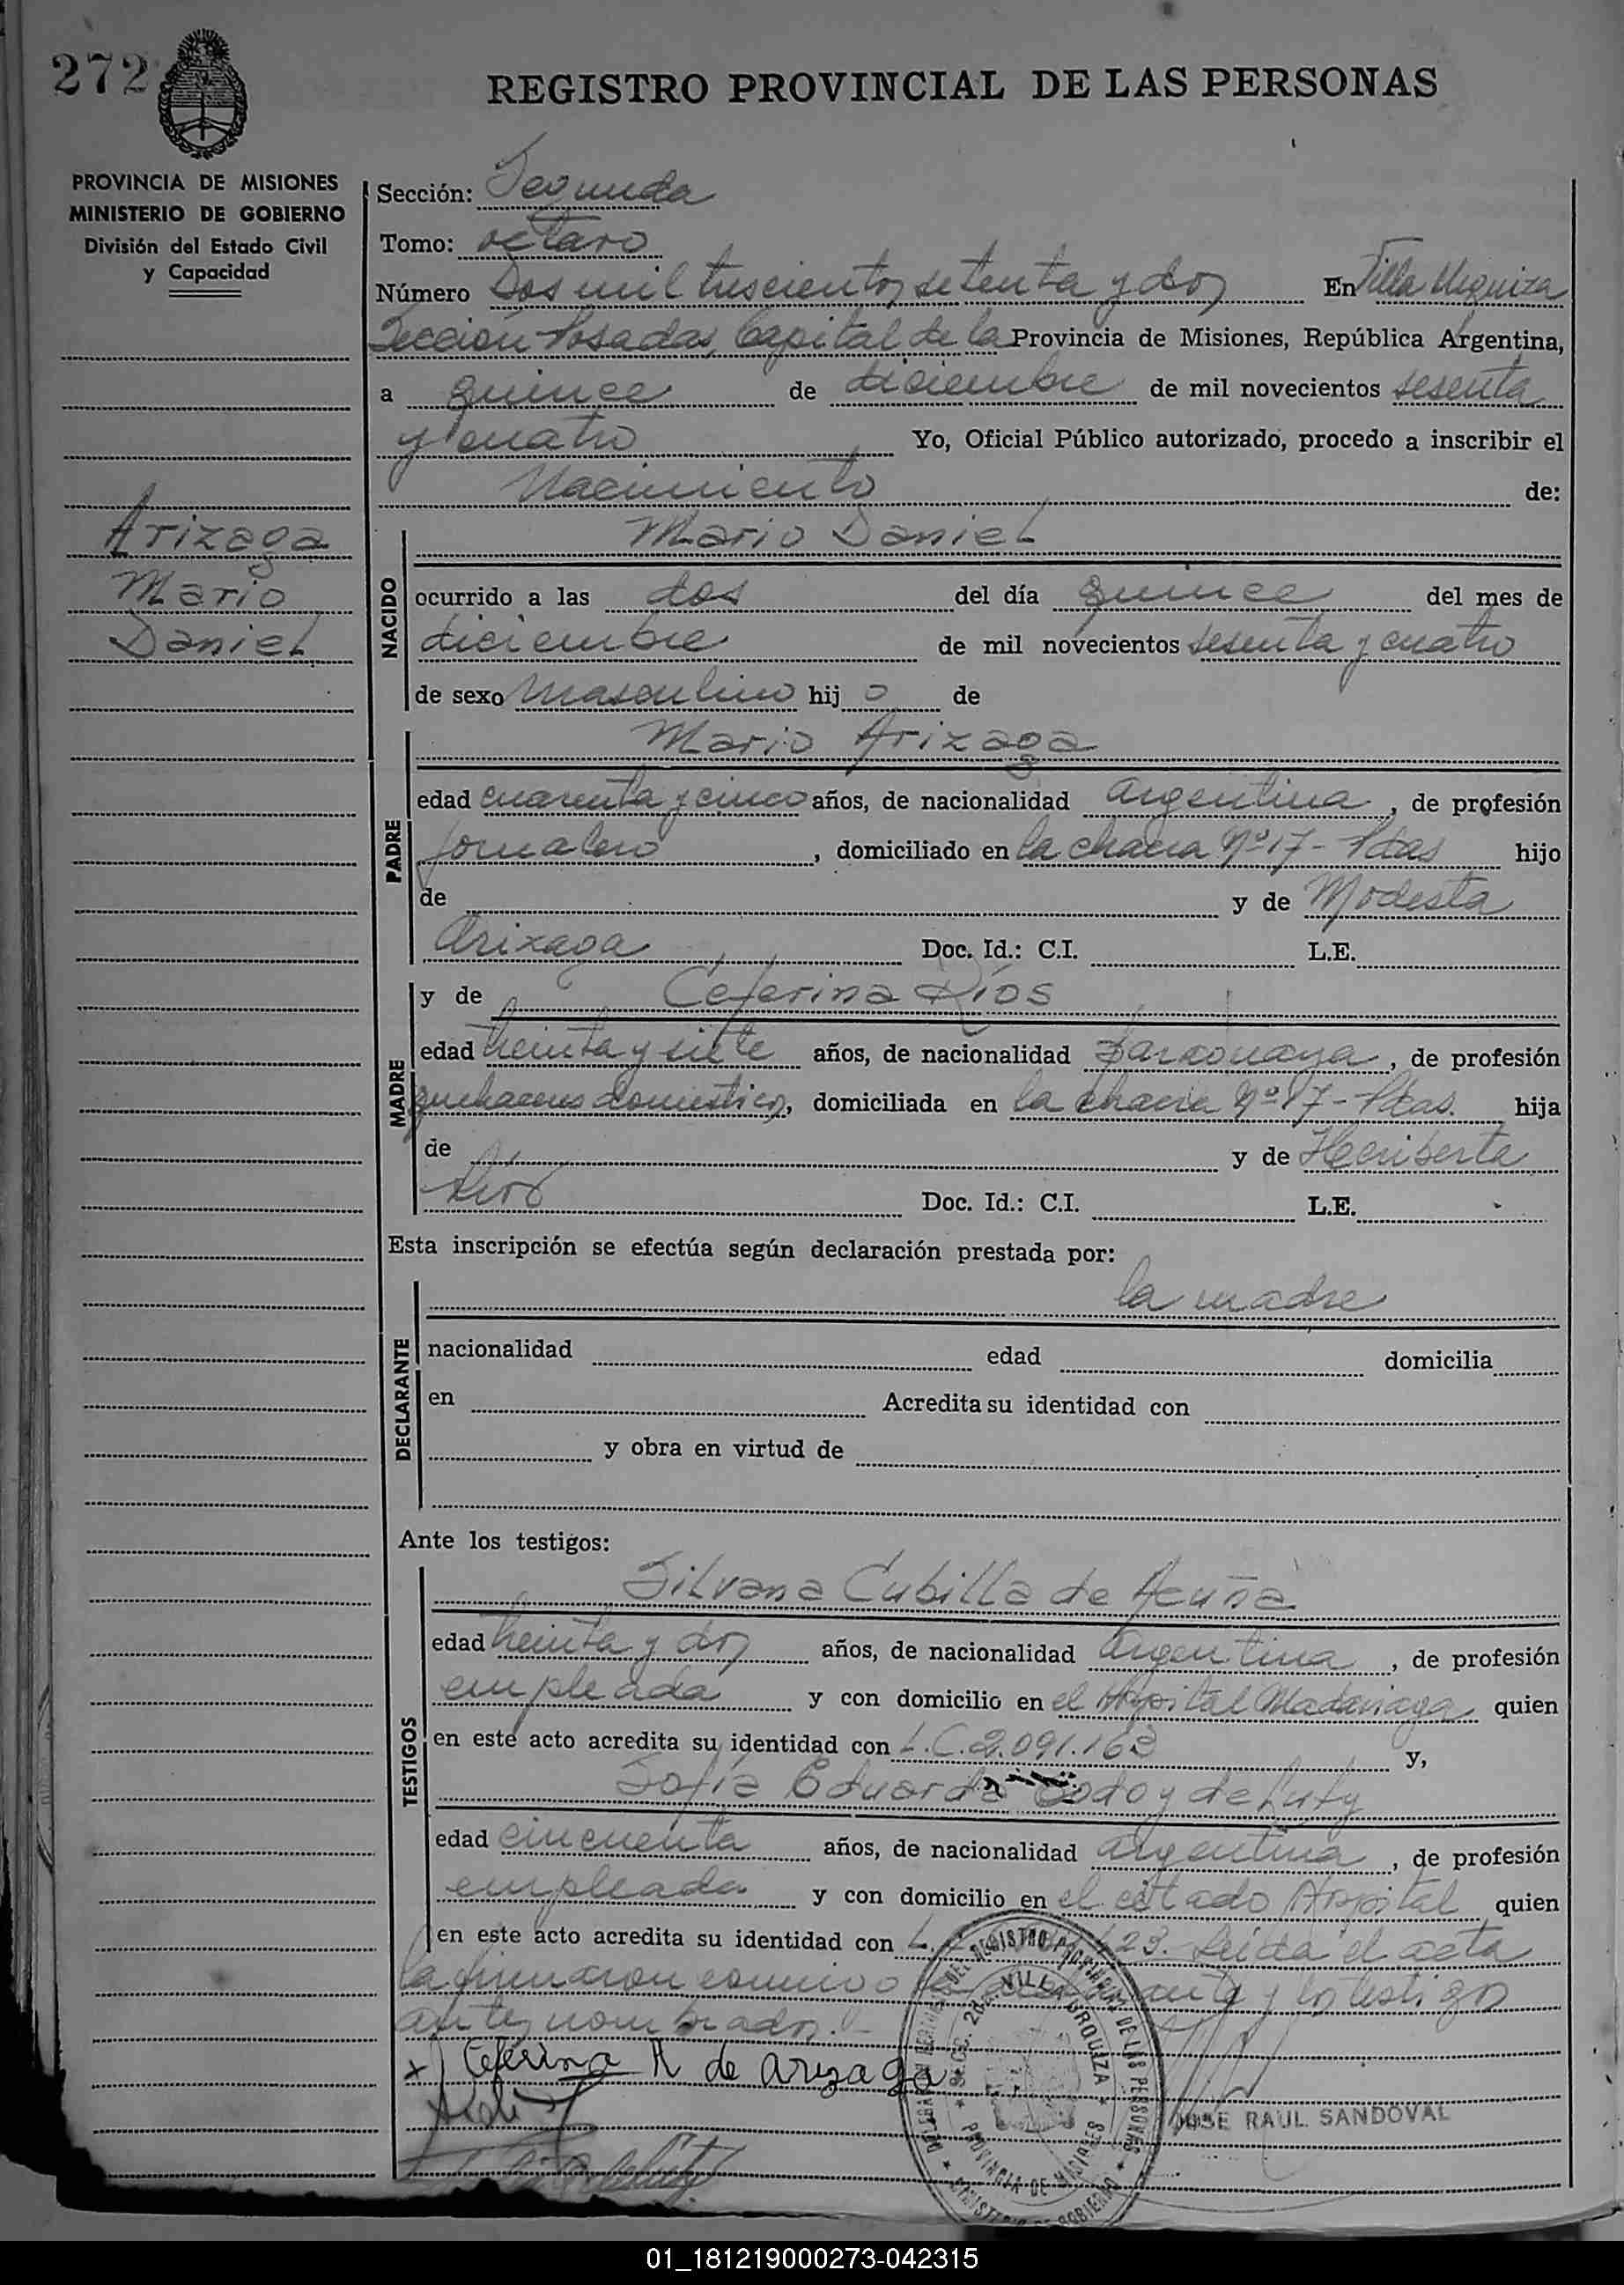 272
REGISTRO PROVINCIAL DE LAS PERSONAS
PROVINCIA DE MISIONES
MINISTERIO DE GOBIERNO
División del Estado Civil
y Capacidad
Sección: Segunda
Tomo: octavo
Número Dos mil trescientos setenta y dos En Villa Urquiza
Sección Posadas, Capital de la Provincia de Misiones, República Argentina,
a quince de diciembre de mil novecientos sesenta
y cuatro Yo, Oficial Público autorizado, procedo a inscribir el
Nacimiento de:
Arizaga
Mario
Daniel
NACIDO
Mario Daniel
ocurrido a las dos del día quince del mes de
diciembre de mil novecientos sesenta y cuatro
de sexo masculino hijo de
PADRE
Mario Arizaga
edad cuarenta y cinco años, de nacionalidad argentina, de profesión
jornalero, domiciliado en la chacra Nº 17 - Pdas hijo
de y de Modesta
Arizaga Doc. Id.: C.I. L.E.
MADRE
y de Ceferina Ríos
edad treinta y siete años, de nacionalidad paraguaya, de profesión
quehaceres domésticos, domiciliada en la chacra Nº 17 - Pdas. hija
de y de Heriberta
Ríos Doc. Id.: C.I. L.E.
Esta inscripción se efectúa según declaración prestada por:
DECLARANTE
la madre
nacionalidad edad domicilia
en Acredita su identidad con
y obra en virtud de
Ante los testigos:
TESTIGOS
Silvana Cubilla de Acuña
edad treinta y dos años, de nacionalidad argentina, de profesión
empleada y con domicilio en el Hospital Madariaga quien
en este acto acredita su identidad con L.C. 2.091.163 y,
Sofía Eduarda Godoy de
edad cincuenta años, de nacionalidad argentina, de profesión
empleada y con domicilio en el citado Hospital quien
en este acto acredita su identidad con L. 23. Leída el acta
la firmaron conmigo y los testigos
antes nombrados.-
Ceferina R de Arizaga
DELEGACION DEL REGISTRO PROVINCIAL DE LAS PERSONAS
SECC. 2da. VILLA URQUIZA
PROVINCIA DE MISIONES
MINISTERIO DE GOBIERNO
JOSE RAUL SANDOVAL
01_181219000273-042315